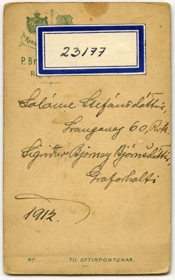 23177
P. Br
Salóme Stefánsdóttir,
60, Rvk.
Sigríður Björney Björnsdóttir,
Grafarholti
1912.
TIL EFTIRPÖNTUNAR.